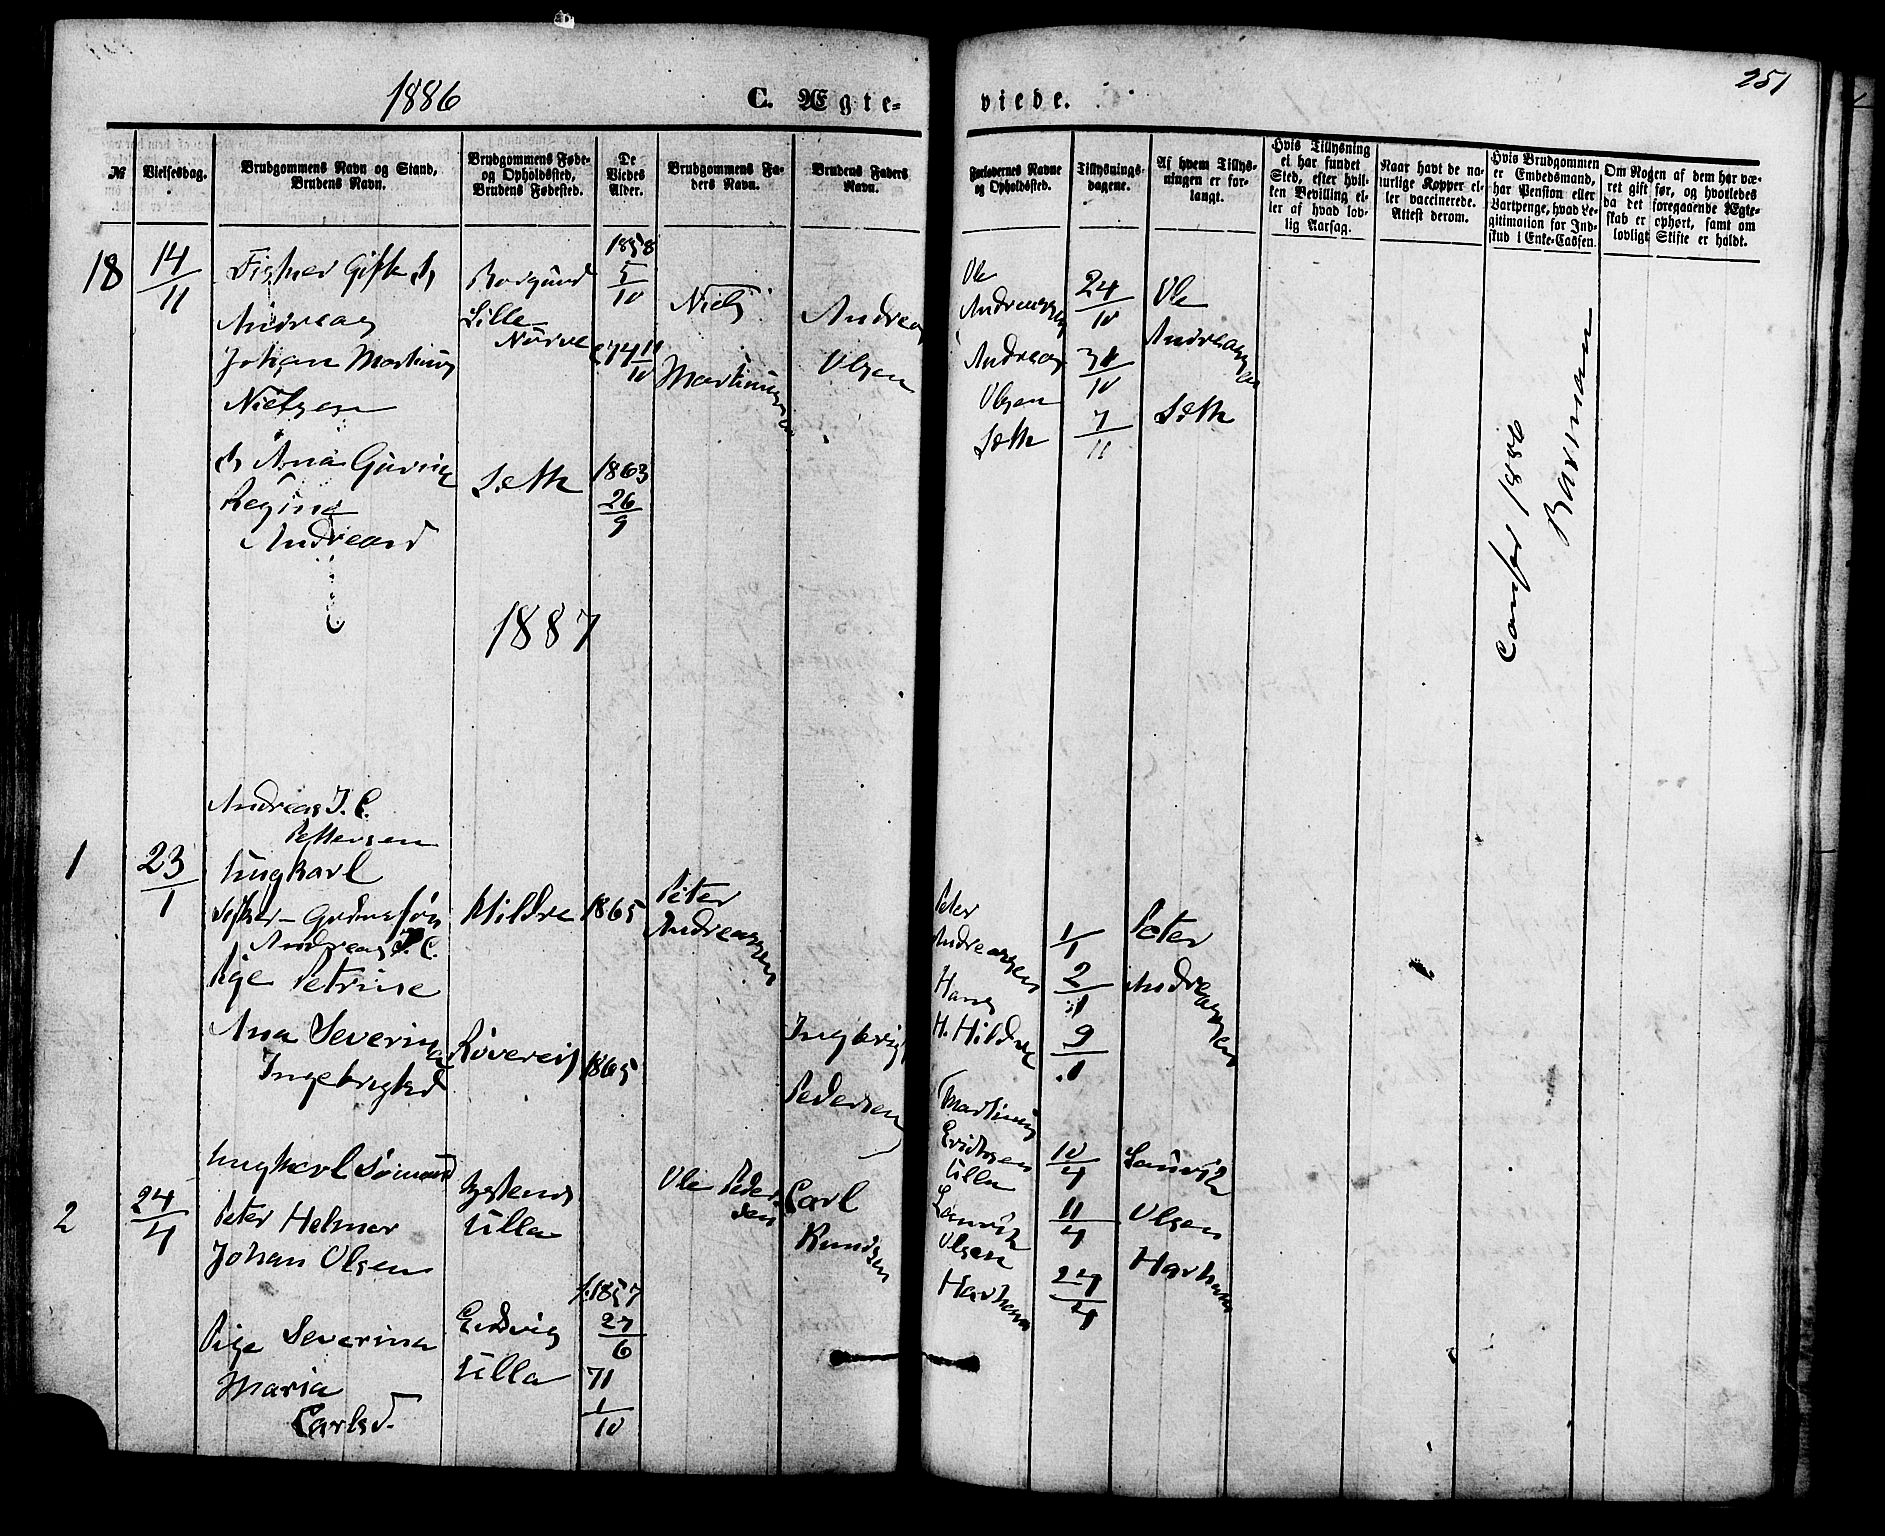 1886
C. Ægte-
viede.
251
№
Vielsesdag.
Brudgommens Navn og Stand,
Brudens Navn.
Brudgommens Føde-
og Opholdssted,
Brudens Fødested.
De
Viedes
Alder.
Brudgommens Fa-
ders Navn.
Brudens Faders
Navn.
Forlovernes Navne
og Opholdssted.
Tillysnings-
dagene.
Af hvem Tillys-
ningen er for-
langt.
Hvis Tillysning
ei har fundet
Sted, efter hvil-
ken Bevilling el-
ler af hvad lov-
lig Aarsag.
Naar havt de na-
turlige Kopper el-
ler vaccinerede.
Attest derom.
Hvis Brudgommen
er Embedsmand,
har Pension eller
Vartpenge, hvad Le-
gitimation for Ind-
skud i Enke-Cassen.
Om Nogen af dem har væ-
ret gift før, og hvorledes
da det foregaaende Ægte-
skab er ophørt, samt om
lovligt Skifte er holdt.
18
14/11
Fisker Gift
Andreas
Johan Martinus
Nielsen
Ana Gurine
Regine
Andreasd
Borgund
Lille-
Nørve
Sætre
1858
5/10
74 11/10
1863
26/9
Niels
Martinussen
Andreas
Olsen
Ole
Andreassen
Andreas
Olsen
Sætre
24/10
31/10
7/11
Ole
Andreassen
Sætre
confer 1886
1887
1
23/1
Andreas J. C.
Pettersen
Ungkarl
Fisker - Gdmssøn
Andreas J. C.
Pige Petrine
Ana Severine
Ingebrigtsd
Hildre
1865
1865
Peter
Andreassen
Ingebrigt
Pedersen
Peter
Andreassen
Hans
H. Hildre
1/1
2/1
9/1
Peter
Andreassen
2
24/4
Ungkarl Sømand
Peter Helmer
Johan Olsen
Pige Severine
Maria
Carlsd.
Ulla
Ulla
f. 1857
27/6
71
1/10
Ole Peder-
sen
Carl
Knudsen
Martinus
Eriksen
Ulla
Laurits
Olsen
Harham
10/4
11/4
24/4
Laurits
Olsen
Harham